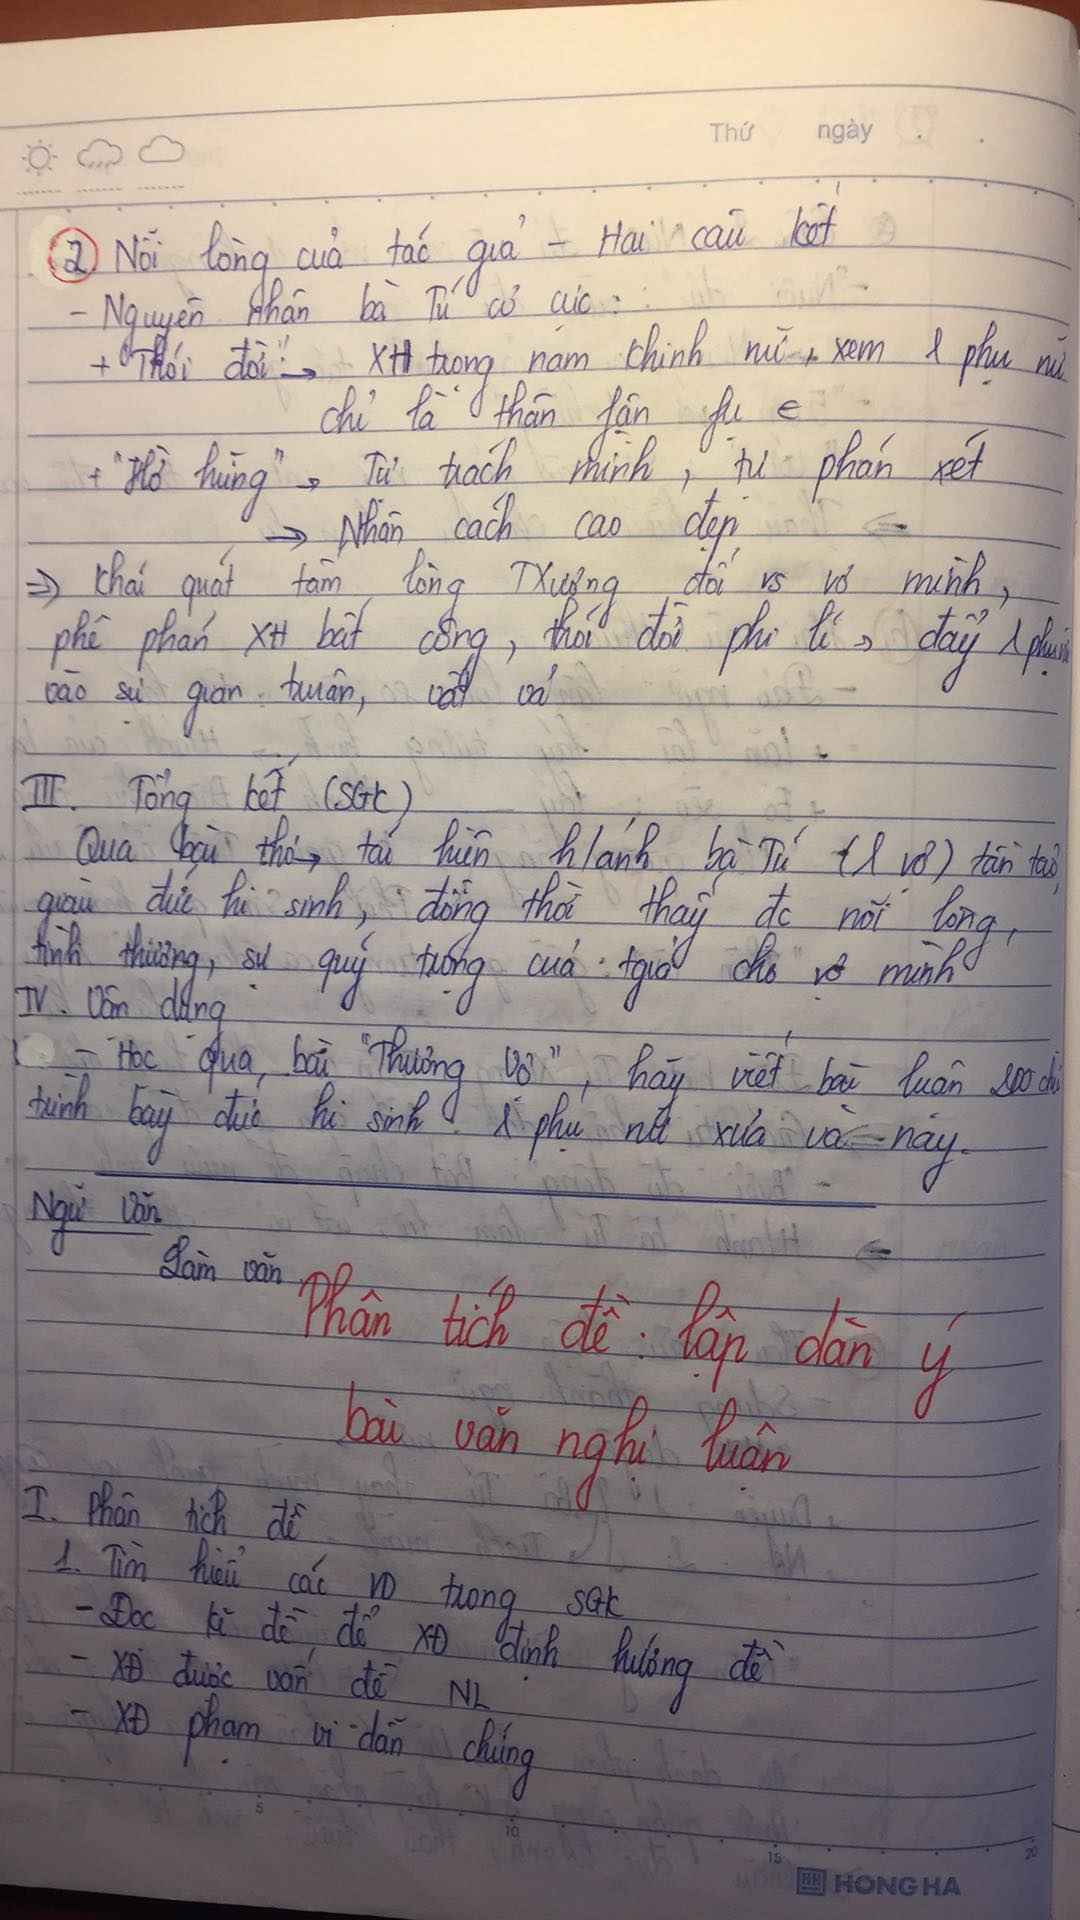 Thứ ngày . .
② Nỗi lòng của tác giả - Hai câu kết
- Nguyên nhân bà Tú cơ cực:
+ "Thói đời" → XH trọng nam khinh nữ, xem λ phụ nữ
chỉ là thân fận fụ ∈
+ "Hờ hững" → Tự trách mình, tự phán xét
→ Nhân cách cao đẹp
⇒ Khái quát tấm lòng TXương đối vs vợ mình,
phê phán XH bất công, thói đời phi lí → đẩy λ phụ nữ
vào sự gian truân, vất vả
III. Tổng kết (SGK)
Qua bài thơ → tái hiện h/ảnh bà Tú (λ vợ) tần tảo,
giàu đức hi sinh, đồng thời thấy đc nỗi lòng,
tình thương, sự quý trọng của tgiả cho vợ mình
IV. Vận dụng
- Học qua bài "Thương Vợ", hãy viết bài luận 200 chữ
trình bày đức hi sinh λ phụ nữ xưa và nay.
Ngữ Văn
Làm văn
Phân tích đề: lập dàn ý
bài văn nghị luận
I. Phân tích đề
1. Tìm hiểu các VD trong SGK
- Đọc kĩ đề để XĐ định hướng đề
- XĐ được vấn đề NL
- XĐ phạm vi dẫn chứng
5 10 15 20
HH HONG HA